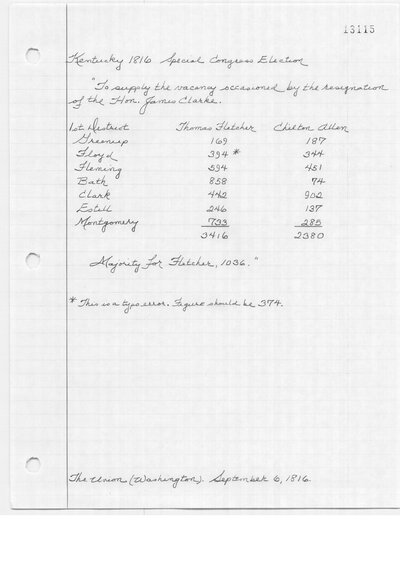 13115
Kentucky 1816 Special Congress Election
"To supply the vacancy occasioned by the resignation
of the Hon. James Clarke.
1st District Thomas Fletcher Chilton Allen
Greenup 169 187
Floyd 394 * 344
Fleming 594 451
Bath 858 74
Clark 442 902
Estill 246 137
Montgomery 733 285
3416 2380
Majority for Fletcher, 1036."
* This is a typo error. Figure should be 374.
The Union (Washington). September 6, 1816.